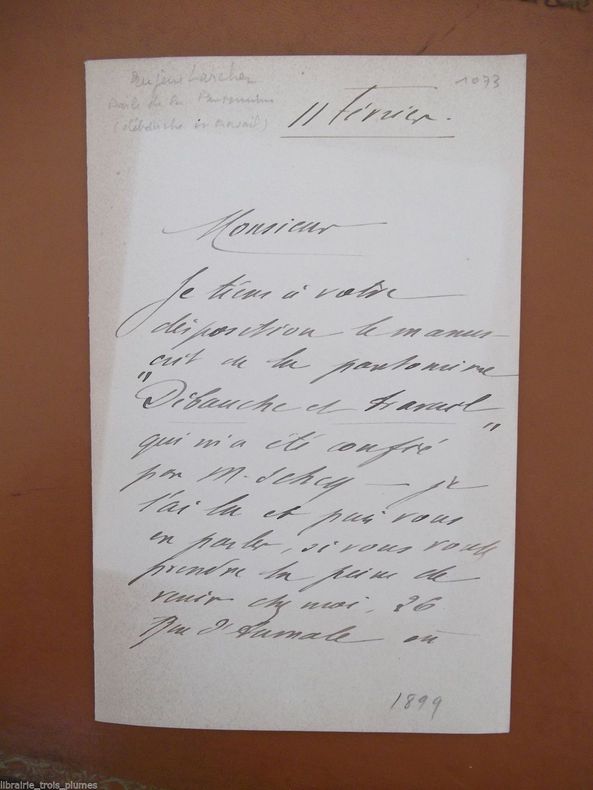 Eugène Larcher
parle de la Pantomime
(Débauche et travail)
1073
11 Février.
Monsieur
Je tiens à votre
disposition le manus-
crit de la pantomime
"Débauche et travail"
qui m'a été confié
par M. — je
l'ai lu et puis vous
en parler, si vous voulez
prendre la peine de
venir chez moi, 26
Rue d'Aumale où
1899
librairie_trois_plumes